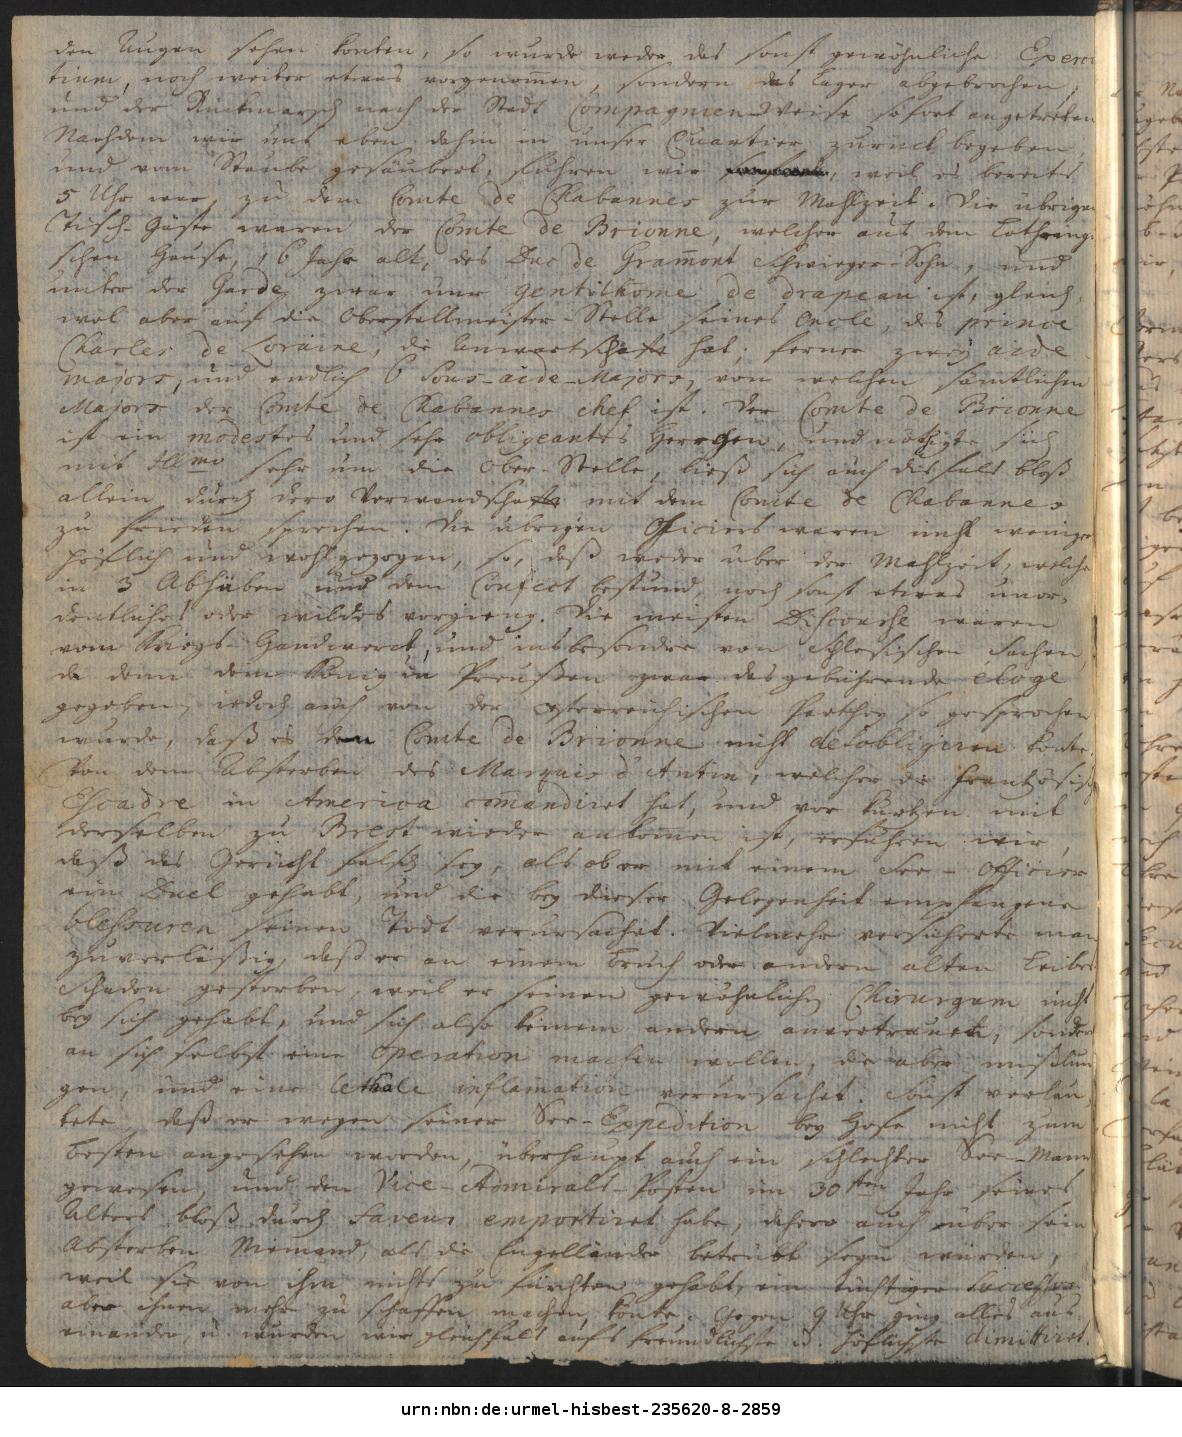 den Augen sehen konten, so wurde weder das sonst gewöhnliche Exerci
tium, noch weiter etwas vorgenom̅en, sondern das Lager abgebrochen,
und der Rückmarsch nach der Stadt Compagnien-Weise sofort angetreten
Nachdem wir uns eben dahin in unser Quartier zurück begeben,
und vom Staube gesäubert, fuhren wir, weil es bereits
5 Uhr war, zu dem Comte de Chabannes zur Mahlzeit. Die übrigen
Tisch-Gäste waren der Comte de Brionne, welcher aus dem Lothringi
schen Hause, 16 Jahr alt, des Duc de Gram̅ont Schwieger-Sohn, und
unter der Garde zwar nur gentilhome de drapeau ist, gleich-
wol aber auf die Oberstallmeister-Stelle seines Oncle, des prince
Charles de Loraine, die Anwartschafft hat; ferner zwey aide
majors, und endlich 6 Sous-aide-Majors, von welchen sämtlichen
Majors der Comte de Chabannes chef ist. Der Comte de Brionne
ist ein modestes und sehr obligeantes Herrchen, und nöthigte sich
mit Illmo sehr um die Ober-Stelle, ließ sich auch disfals bloß
allein durch dero Verwandschafft mit dem Comte de Chabannes
zu frieden sprechen. Die übrigen Officiers waren nicht weniger
höflich und wohlgezogen, so, daß weder über der Mahlzeit, welche
in 3 Abhüben und dem Confect bestund, noch sonst etwas unor-
dentliches oder wildes vorgieng. Die meisten Discourse waren
vom Kriegs-Handwerck, und insbesondre von Schlesischen Sachen,
da denn dem König in Preußen zwar das gebührende eloge
gegeben, iedoch auch von der oesterreichischen Parthey so gesprochen
wurde, daß es dem Comte de Brionne nicht desobligiren konte.
Von dem Absterben des Marquis d'Antin, welcher die frantzösisch
Escadre in America com̅andiret hat, und vor kurtzen mit
derselben zu Brest wieder ankom̅en ist, erfuhren wir,
daß das Gerücht falsch sey, als ob er mit einem See-Officier
ein Duel gehabt, und die bey dieser Gelegenheit empfangene
blessuren seinen Todt verursachet. Vielmehr versicherte man
zuverläßig, daß er an einem Bruch oder andern alten Leibes
Schaden gestorben, weil er seinen gewöhnlichen Chirurgum nicht
bey sich gehabt, und sich also keinem andern anvertrauet, sonder
an sich selbst eine Operation machen wollen, die aber mißlun
gen, und eine lethale inflam̅ation verursachet. Sonst verlau-
tete, daß er wegen seiner See-Expedition bey Hofe nicht zum
besten angesehen worden, überhaupt auch ein schlechter See-Mann
gewesen, und den Vice-Admirals-Posten im 30sten Jahr seines
Alters bloß durch Faveur emportiret habe, dahero auch über sein
Absterben Niemand, als die Engelländer betrübt seyn würden,
weil sie von ihm nichts zu fürchten gehabt, ein tüchtiger Successor
aber ihnen mehr zu schaffen machen könte. Gegen 9 Uhr ging alles aus
einander, u. wurden wir gleichfals aufs freundlichste u. höflichste dimittiret.
urn:nbn:de:urmel-hisbest-235620-8-2859